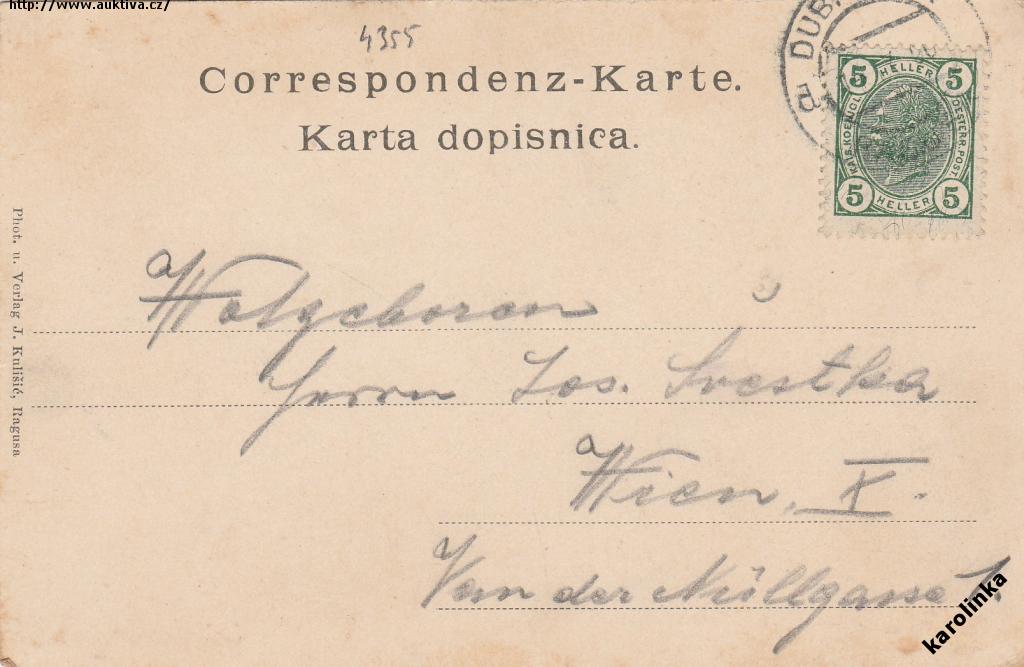 http://www.auktiva.cz/
4355
Correspondenz-Karte.
Karta dopisnica.
DUB
5 HELLER 5
KAIS. KOENIGL. OESTERR. POST.
5 HELLER 5
Phot. u. Verlag J. Kulišić, Ragusa
Wolgeboren
Herrn Jos. Svestka
Wien, X.
Van der Nüllgasse
karolinka